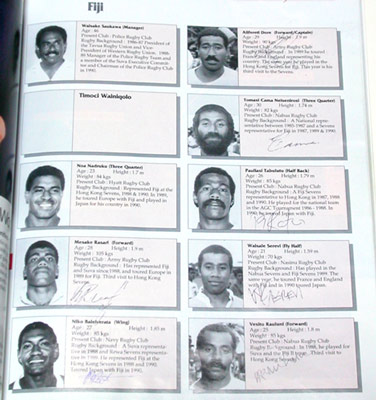 Fiji
Waisake Sankawa (Manager)
Age : 46
Present Club : Police Rugby Club
Rugby Background : President of
the Tavua Rugby Union and Vice
President of Western Rugby Union. 1988-
89 Manager of the Police Rugby Team and
a member of the Suva Executive Commit-
tee and Chairman of the Police Rugby Club
in 1990.
Timoci Wainiqolo
Noa Nadruku (Three Quarter)
Age : 23 Height : 1.7 m
Weight : 84 kgs
Present Club : Hyatt Rugby Club
Rugby Background : Represented Fiji at the
Hong Kong Sevens, 1988 & 1990. In 1989,
he toured Europe with Fiji and played in
Japan for his country in 1990.
Mesake Rasari (Forward)
Age : 28 Height : 1.9 m
Weight : 105 kgs
Present Club : Army Rugby Club
Rugby Background : Has represented Fiji
and Suva since 1988, and toured Europe in
1989 for Fiji. Third visit to Hong Kong
Sevens.
Niko Baleiverata (Wing)
Age : 22 Height : 1.83 m
Weight : 85 kgs
Present Club : Navy Rugby Club
Rugby Background : A Suva representa-
tive in 1988 and Suva Sevens representa-
tive in 1988. He represented Fiji in Hong
Kong Sevens in 1990 and toured Japan
with Fiji in 1990.
Alifereti Dere (Forward/Captain)
Age : 29 Height : 1.9 m
Weight : 90 kgs
Present Club : Army Rugby Club
Rugby Background : In 1989 he toured
France and England representing his
country. The same year he played in the
Hong Kong Sevens for Fiji. This year is his
third visit to the Sevens.
Tomasi Cama (Three Quarter)
Age : 30 Height : 1.74 m
Weight : 82 kgs
Present Club : Nabua Rugby Club
Rugby Background : A National repre-
sentative between 1985-1987 and a Sevens
representative for Fiji in 1987, 1989 & 1990.
Pauliasi Tabulutu (Half Back)
Age : 26 Height : 1.79 m
Weight : 83 kgs
Present Club : Nabua Rugby Club
Rugby Background : A Sevens
representative to Hong Kong in 1987, 1988
and 1990. He played for the national team
in the AGC Tournament 1986 - 1988. In
1990, he toured Japan with Fiji.
Waisale Serevi (Fly Half)
Age : 21 Height : 1.59 m
Weight : 70 kgs
Present Club : Nasinu Rugby Club
Rugby Background : Has played in the
Nabua Sevens and Fiji Sevens 1989. The
same year, he toured France and England
with Fiji and played in Japan.
Vesito Rauluni (Forward)
Age : 23 Height : 1.8 m
Weight : 85 kgs
Present Club : Nabua Rugby Club
Rugby Background : In 1988, he played for
Suva and the Fiji B team. Third visit to
the Hong Kong Sevens.